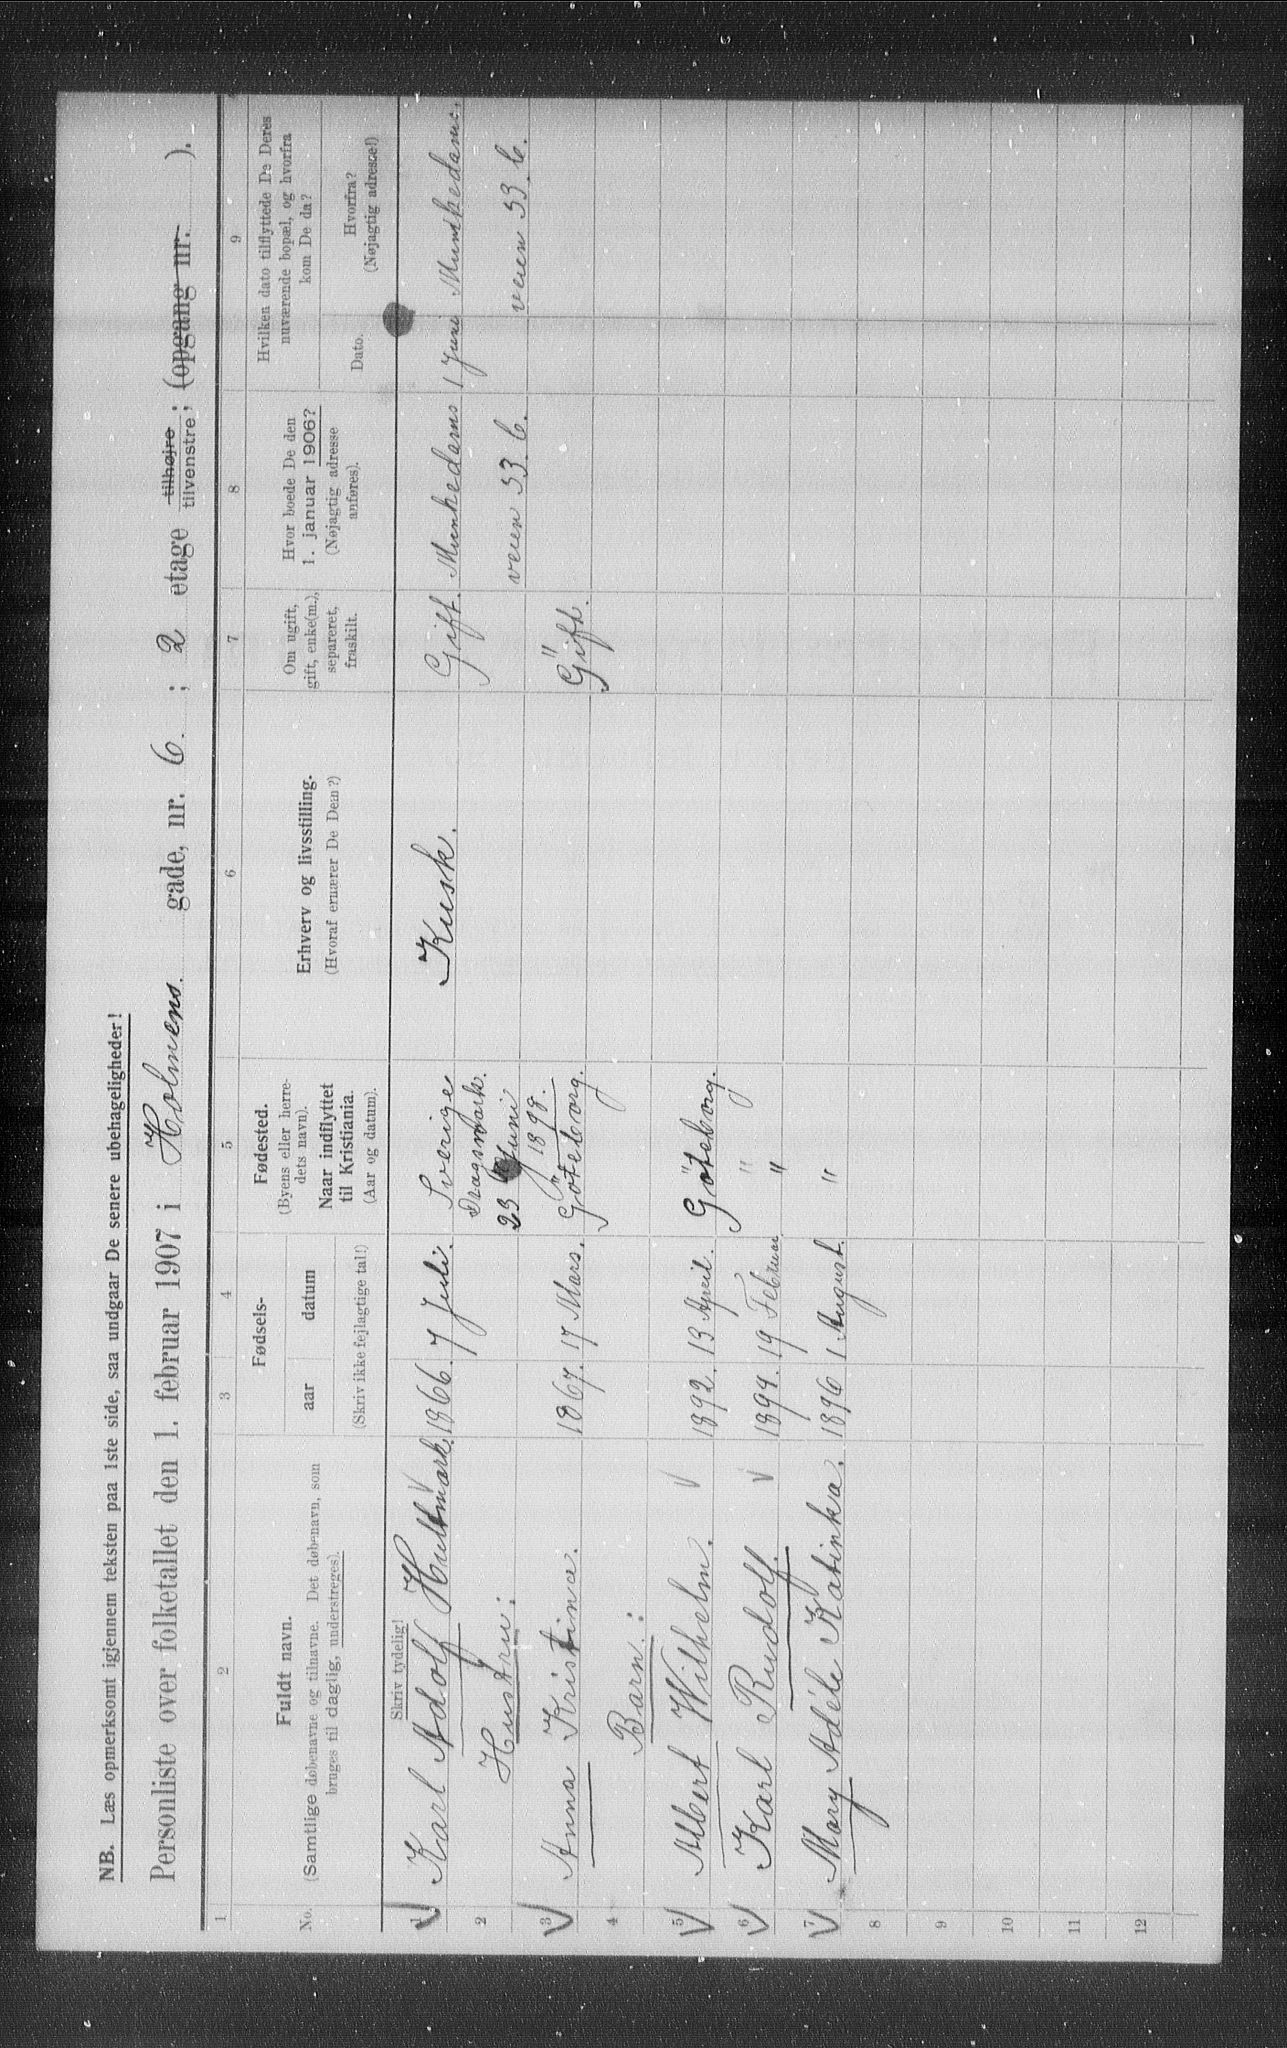 NB. Læs opmerksomt igjennem teksten paa 1ste side, saa undgaar De senere ubehageligheder!
Personliste over folketallet den 1. februar 1907 i Holmens gade, nr. 6 ; 2 etage tilhøjre tilvenstre; (opgang nr. ).
1 2 3 4 5 6 7 8 9
No.
Fuldt navn.
(Samtlige døbenavne og tilnavne. Det døbenavn, som
bruges til daglig, understreges).
Skriv tydelig!
Fødsels-
aar datum
(Skriv ikke fejlagtige tal!)
Fødested.
(Byens eller herre-
dets navn).
Naar indflyttet
til Kristiania.
(Aar og datum).
Erhverv og livsstilling.
(Hvoraf ernærer De Dem?)
Om ugift,
gift, enke(m.),
separeret,
fraskilt.
Hvor boede De den
1. januar 1906?
(Nøjagtig adresse
anføres).
Hvilken dato tilflyttede De Deres
nuværende bopæl, og hvorfra
kom De da?
Dato.
Hvorfra?
(Nøjagtig adresse!)
1 Karl Adolf Hultmark. 1866. 7 Juli. Sverige Kusk. Gift. Munkedams 1 Juni Munkedams.
2 Hustru: Dragsmark. veien 33. b. veien 33. b.
23 Juni
1898.
3 Anna Kristina. 1867. 17 Mars. Göteborg. " Gift.
4 Barn.:
5 Albert Wilhelm. 1892. 13 April. Göteborg.
6 Karl Rudolf. 1894. 19 Februar " "
7 Mary Adéle Katinka. 1896 1 August. "
8
9
10
11
12